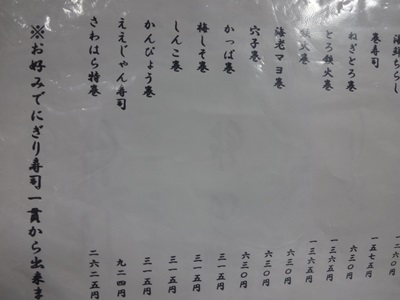 海鮮ちらし 一二六〇円
巻寿司 一五七五円
ねぎとろ巻 六三〇円
とろ鉄火巻 一三六五円
鉄火巻 一三六五円
海老マヨ巻 六三〇円
穴子巻 六三〇円
かっぱ巻 六三〇円
梅しそ巻 三一五円
しんこ巻 三一五円
かんぴょう巻 三一五円
ええじゃん寿司 九二四円
さわはら特巻 二六二五円
※お好みでにぎり寿司一貫から出来ま